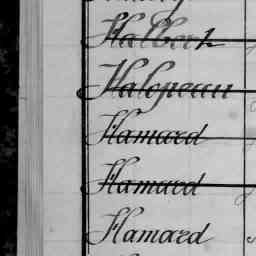 Halbert
Halopeau
Hamard
Hamard
Hamard